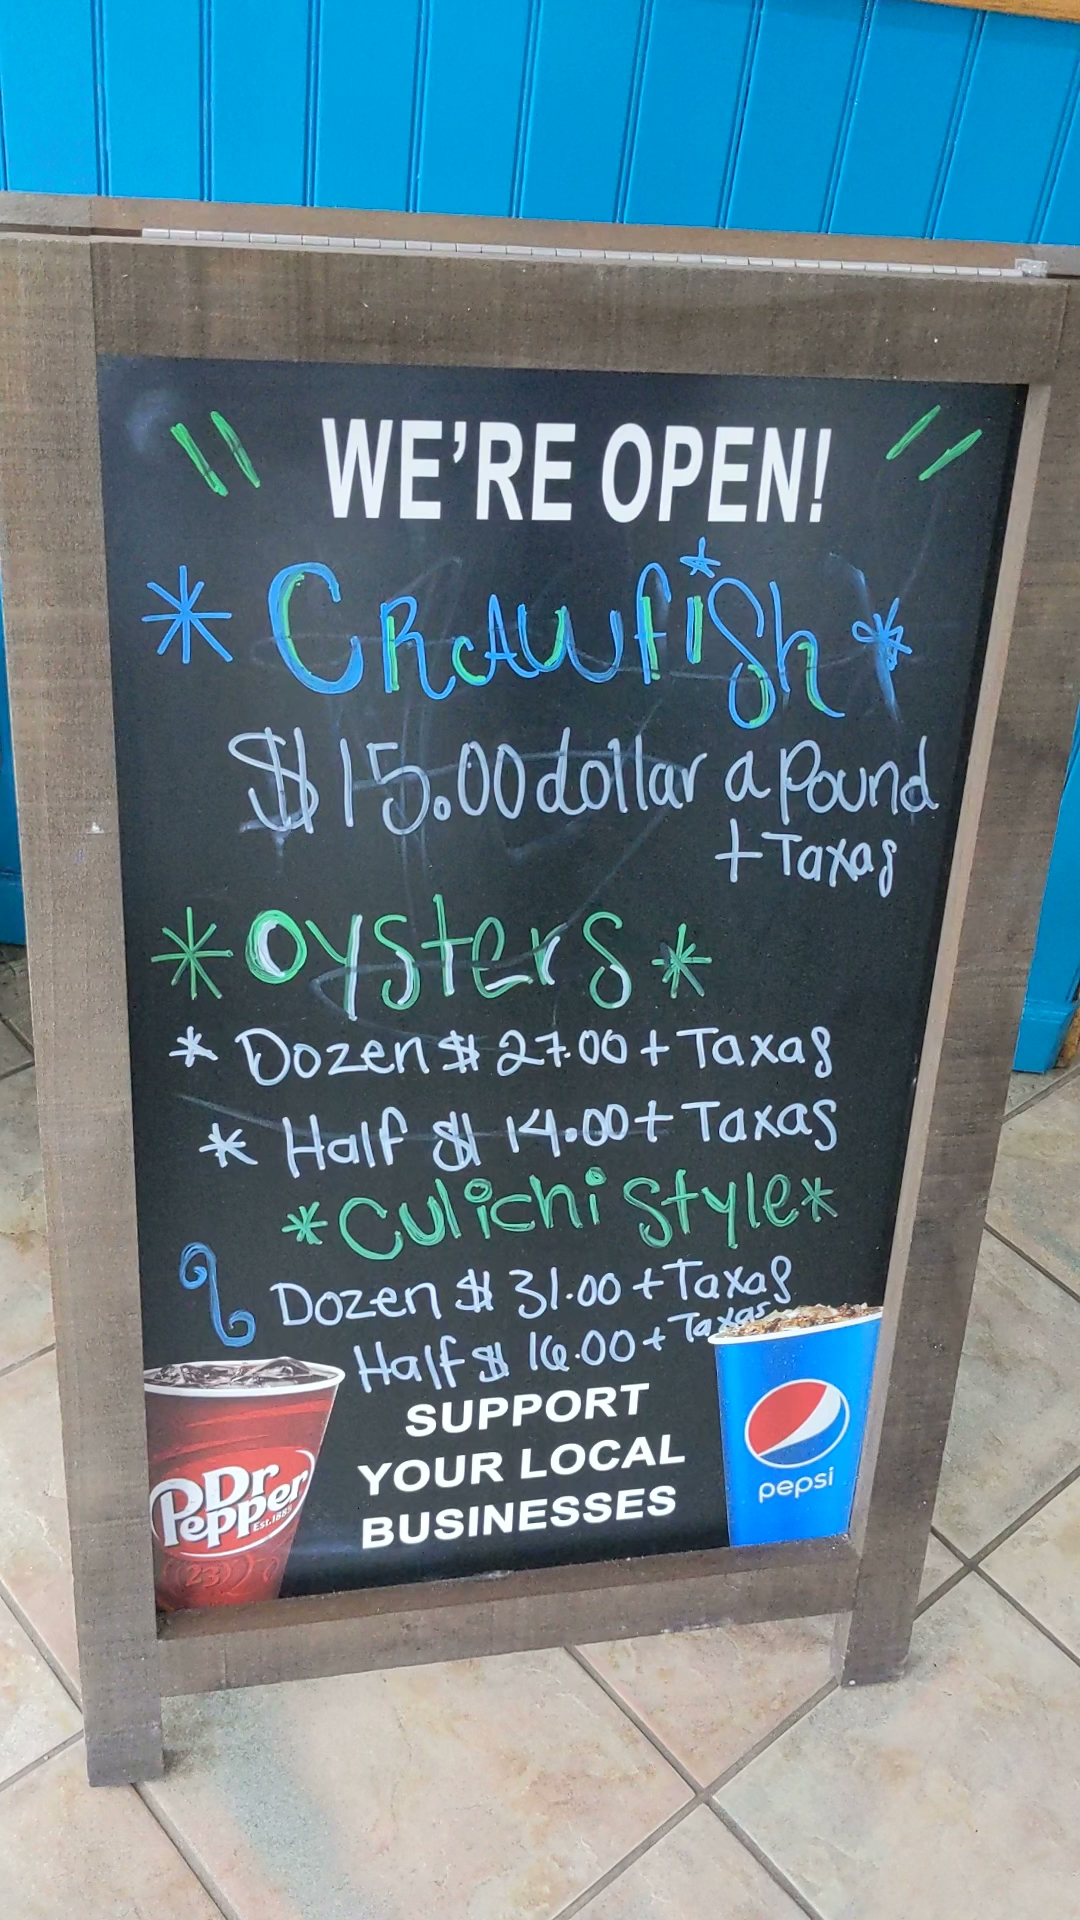 WE'RE OPEN!
* CRAWfish *
$15.00 dollar a Pound
+ Taxas
* Oysters *
* Dozen $27.00 + Taxas
* Half $14.00 + Taxas
* Culichi Style *
Dozen $31.00 + Taxas
Half $16.00 + Taxas
SUPPORT
YOUR LOCAL
BUSINESSES
Dr
Pepper
Est.1885
23
pepsi